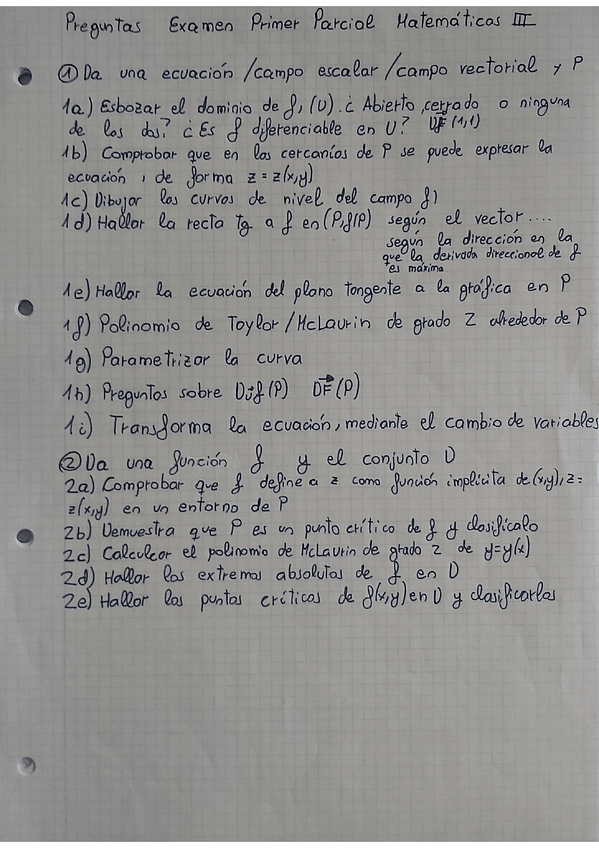 Preguntas Examen Primer Parcial Matemáticas III
① Da una ecuación /campo escalar /campo vectorial y P
1a) Esbozar el dominio de f, (U). ¿Abierto, cerrado o ninguna
de las dos? ¿Es f diferenciable en U? DF (1,1)
1b) Comprobar que en las cercanías de P se puede expresar la
ecuación, de forma z = z(x,y)
1c) Dibujar las curvas de nivel del campo f)
1d) Hallar la recta tg a f en (P, f(P)) según el vector ....
según la dirección en la
que la derivada direccional de f
es máxima
1e) Hallar la ecuación del plano tangente a la gráfica en P
1f) Polinomio de Taylor/McLaurin de grado 2 alrededor de P
1g) Parametrizar la curva
1h) Preguntas sobre Dv⃗f(P) DF⃗(P)
1i) Transforma la ecuación, mediante el cambio de variables
② Da una función f y el conjunto D
2a) Comprobar que f define a z como función implícita de (x,y), z=
z(x,y) en un entorno de P
2b) Demuestra que P es un punto crítico de f y clasifícalo
2c) Calcular el polinomio de McLaurin de grado 2 de y=y(x)
2d) Hallar los extremos absolutos de f en D
2e) Hallar los puntos críticos de f(x,y) en D y clasificarlos